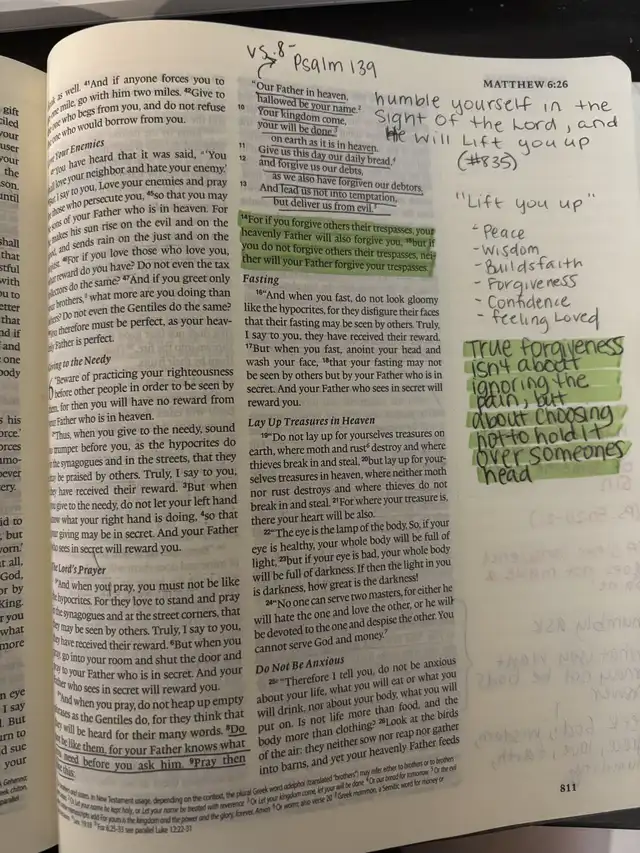 vs. 8- Psalm 139
MATTHEW 6:26
humble yourself in the
sight of the Lord, and
He will Lift you up
(#835)
"Lift you up"
- Peace
- Wisdom
- Builds faith
- Forgiveness
- Confidence
- feeling Loved
True forgiveness
isn't about
ignoring the
pain, but
about choosing
not to hold it
over someones
head
as well. 41And if anyone forces you to
mile, go with him two miles. 42Give to
one who begs from you, and do not refuse
one who would borrow from you.
Your Enemies
you have heard that it was said, "You
love your neighbor and hate your enemy.'
I say to you, Love your enemies and pray
those who persecute you, 45so that you may
sons of your Father who is in heaven. For
makes his sun rise on the evil and on the
and sends rain on the just and on the
46For if you love those who love you,
what reward do you have? Do not even the tax
collectors do the same? 47And if you greet only
your brothers, what more are you doing than
others? Do not even the Gentiles do the same?
You therefore must be perfect, as your heav-
enly Father is perfect.
Giving to the Needy
"Beware of practicing your righteousness
before other people in order to be seen by
them, for then you will have no reward from
your Father who is in heaven.
"Thus, when you give to the needy, sound
no trumpet before you, as the hypocrites do
in the synagogues and in the streets, that they
may be praised by others. Truly, I say to you,
they have received their reward. 3But when
you give to the needy, do not let your left hand
know what your right hand is doing, 4so that
your giving may be in secret. And your Father
who sees in secret will reward you.
The Lord's Prayer
"And when you pray, you must not be like
the hypocrites. For they love to stand and pray
in the synagogues and at the street corners, that
they may be seen by others. Truly, I say to you,
they have received their reward. 6But when you
pray, go into your room and shut the door and
pray to your Father who is in secret. And your
Father who sees in secret will reward you.
"And when you pray, do not heap up empty
phrases as the Gentiles do, for they think that
they will be heard for their many words. 8Do
not be like them, for your Father knows what
you need before you ask him. 9Pray then
like this:
"Our Father in heaven,
hallowed be your name.
10 Your kingdom come,
your will be done,
on earth as it is in heaven.
11 Give us this day our daily bread,
12 and forgive us our debts,
as we also have forgiven our debtors.
13 And lead us not into temptation,
but deliver us from evil.
14For if you forgive others their trespasses, your
heavenly Father will also forgive you, 15but if
you do not forgive others their trespasses, nei-
ther will your Father forgive your trespasses.
Fasting
16"And when you fast, do not look gloomy
like the hypocrites, for they disfigure their faces
that their fasting may be seen by others. Truly,
I say to you, they have received their reward.
17But when you fast, anoint your head and
wash your face, 18that your fasting may not
be seen by others but by your Father who is in
secret. And your Father who sees in secret will
reward you.
Lay Up Treasures in Heaven
19"Do not lay up for yourselves treasures on
earth, where moth and rust destroy and where
thieves break in and steal, 20but lay up for your-
selves treasures in heaven, where neither moth
nor rust destroys and where thieves do not
break in and steal. 21For where your treasure is,
there your heart will be also.
22"The eye is the lamp of the body. So, if your
eye is healthy, your whole body will be full of
light, 23but if your eye is bad, your whole body
will be full of darkness. If then the light in you
is darkness, how great is the darkness!
24"No one can serve two masters, for either he
will hate the one and love the other, or he will
be devoted to the one and despise the other. You
cannot serve God and money.
Do Not Be Anxious
25"Therefore I tell you, do not be anxious
about your life, what you will eat or what you
will drink, nor about your body, what you will
put on. Is not life more than food, and the
body more than clothing? 26Look at the birds
of the air: they neither sow nor reap nor gather
into barns, and yet your heavenly Father feeds
811